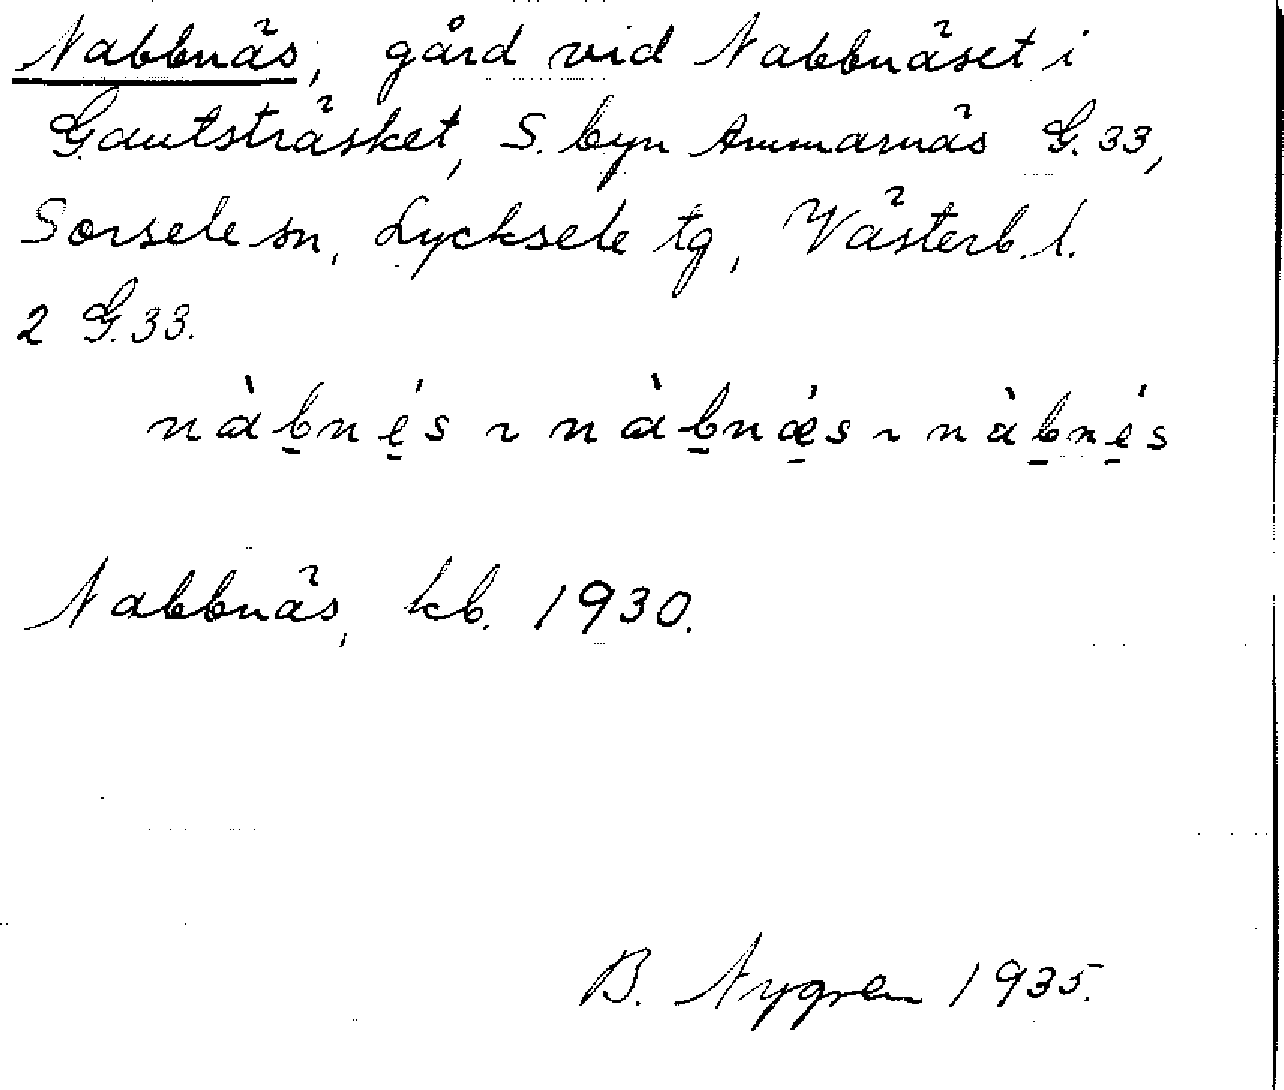 Nabbnäs, gård vid Nabbnäset i
Gautsträsket, S. byn Ammarnäs G. 33,
Sorsele sn, Lycksele tg, Västerb. l.
2 G. 33.
nàb̲nė̲s ~ nàb̲næ̲̇s ~ nàb̲nė̲s
Nabbnäs, kb. 1930.
B. Nygren 1935.